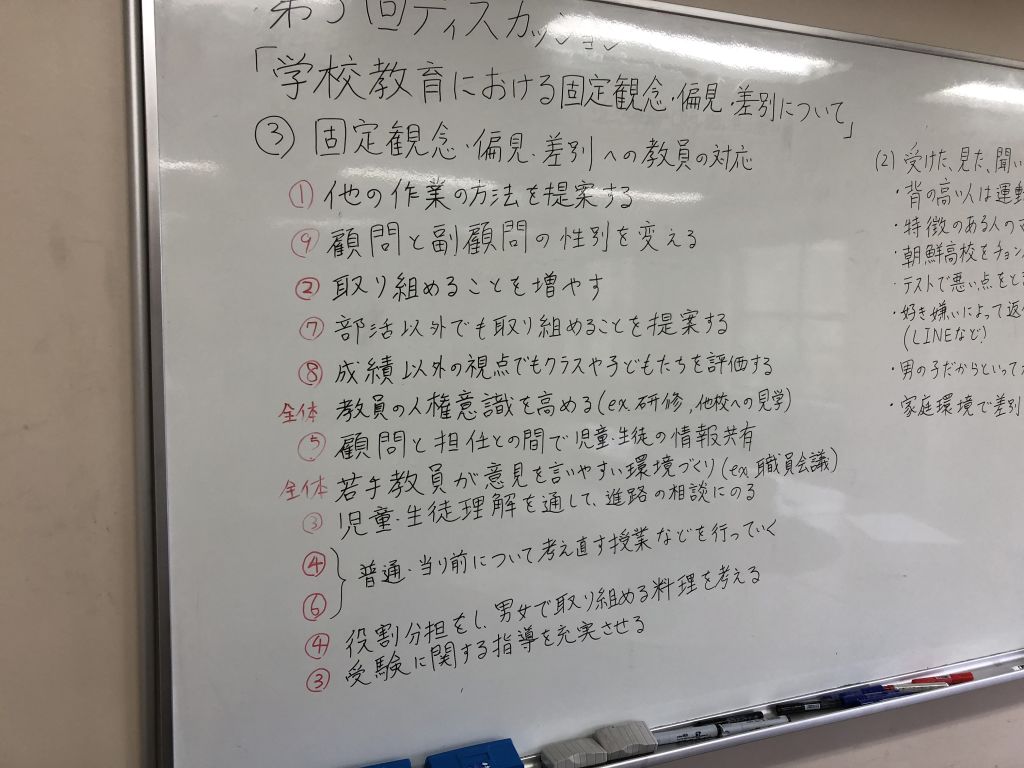 第3回ディスカッション
「学校教育における固定観念・偏見・差別について」
③ 固定観念・偏見・差別への教員の対応
① 他の作業の方法を提案する
⑨ 顧問と副顧問の性別を変える
② 取り組めることを増やす
⑦ 部活以外でも取り組めることを提案する
⑧ 成績以外の視点でもクラスや子どもたちを評価する
全体 教員の人権意識を高める(ex.研修,他校への見学)
⑤ 顧問と担任との間で児童・生徒の情報共有
全体 若手教員が意見を言いやすい環境づくり(ex.職員会議)
③ 児童・生徒理解を通して、進路の相談にのる
④
⑥ } 普通・当り前について考え直す授業などを行っていく
④ 役割分担をし、男女で取り組める料理を考える
③ 受験に関する指導を充実させる
(2) 受けた、見た、聞い
・背の高い人は運動
・特徴のある人の
・朝鮮高校をチョン
・テストで悪い点をと
・好き嫌いによって返
(LINEなど)
・男の子だからといって
・家庭環境で差別